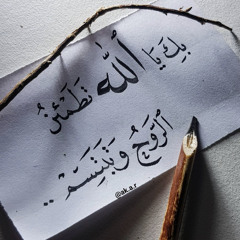 بِكَ يَا اللّٰه تَطْمَئِنُّ
الرُّوحُ وَتَبْتَسِمُ ..
@ak.a.r